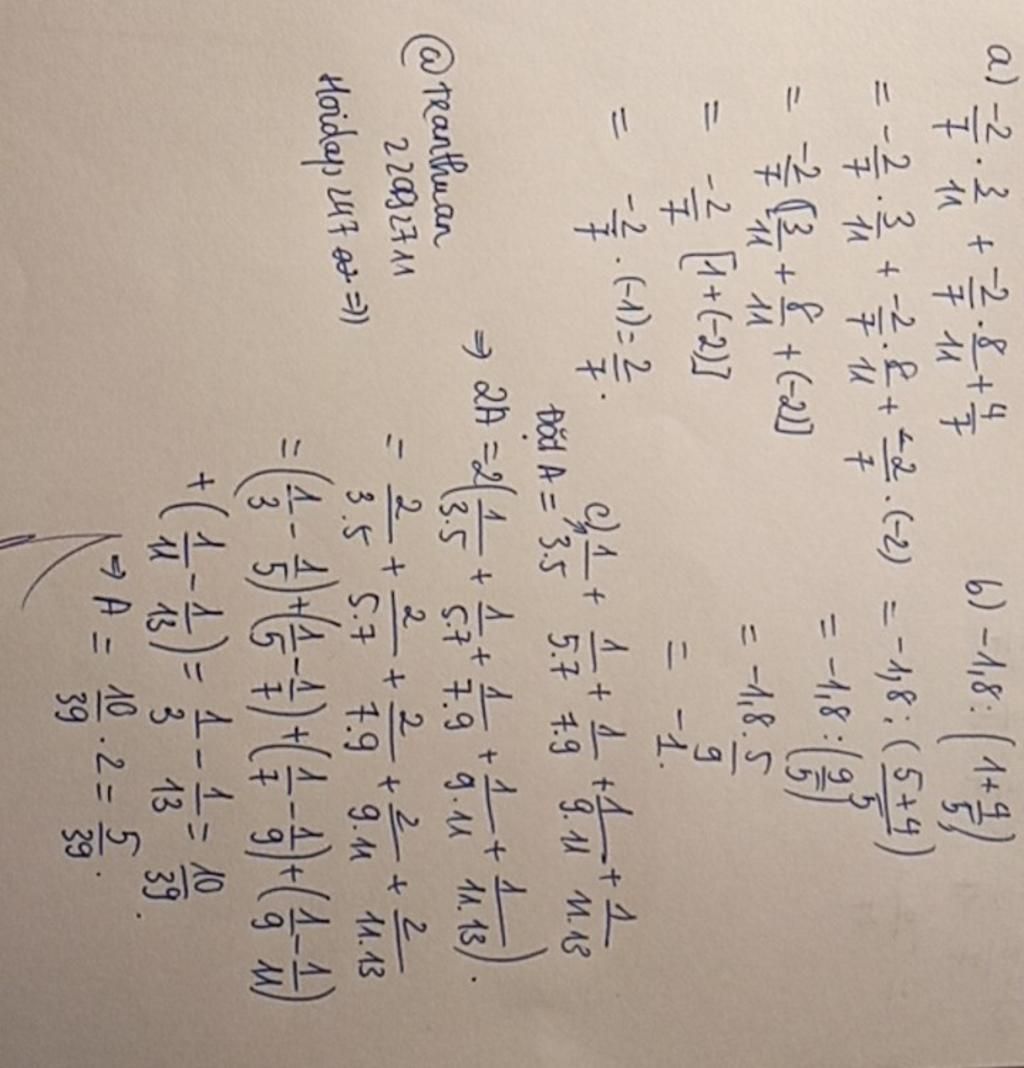 a) -2/7 . 3/11 + -2/7 . 8/11 + 4/7
= -2/7 . 3/11 + -2/7 . 8/11 + -2/7 . (-2)
= -2/7 [3/11 + 8/11 + (-2)]
= -2/7 [1+(-2)]
= -2/7 . (-1) = 2/7 .
b) -1,8 : (1 + 4/5)
= -1,8 : (5+4/5)
= -1,8 : (9/5)
= -1,8 . 5/9
= -1.
c) 1/3.5 + 1/5.7 + 1/7.9 + 1/9.11 + 1/11.13
Đặt A =
⇒ 2A = 2(1/3.5 + 1/5.7 + 1/7.9 + 1/9.11 + 1/11.13).
= 2/3.5 + 2/5.7 + 2/7.9 + 2/9.11 + 2/11.13
= (1/3 - 1/5) + (1/5 - 1/7) + (1/7 - 1/9) + (1/9 - 1/11)
+ (1/11 - 1/13) = 1/3 - 1/13 = 10/39 .
⇒ A = 10/39 . 2 = 5/39 .
@Tranthuan
22092711
Hoidap247